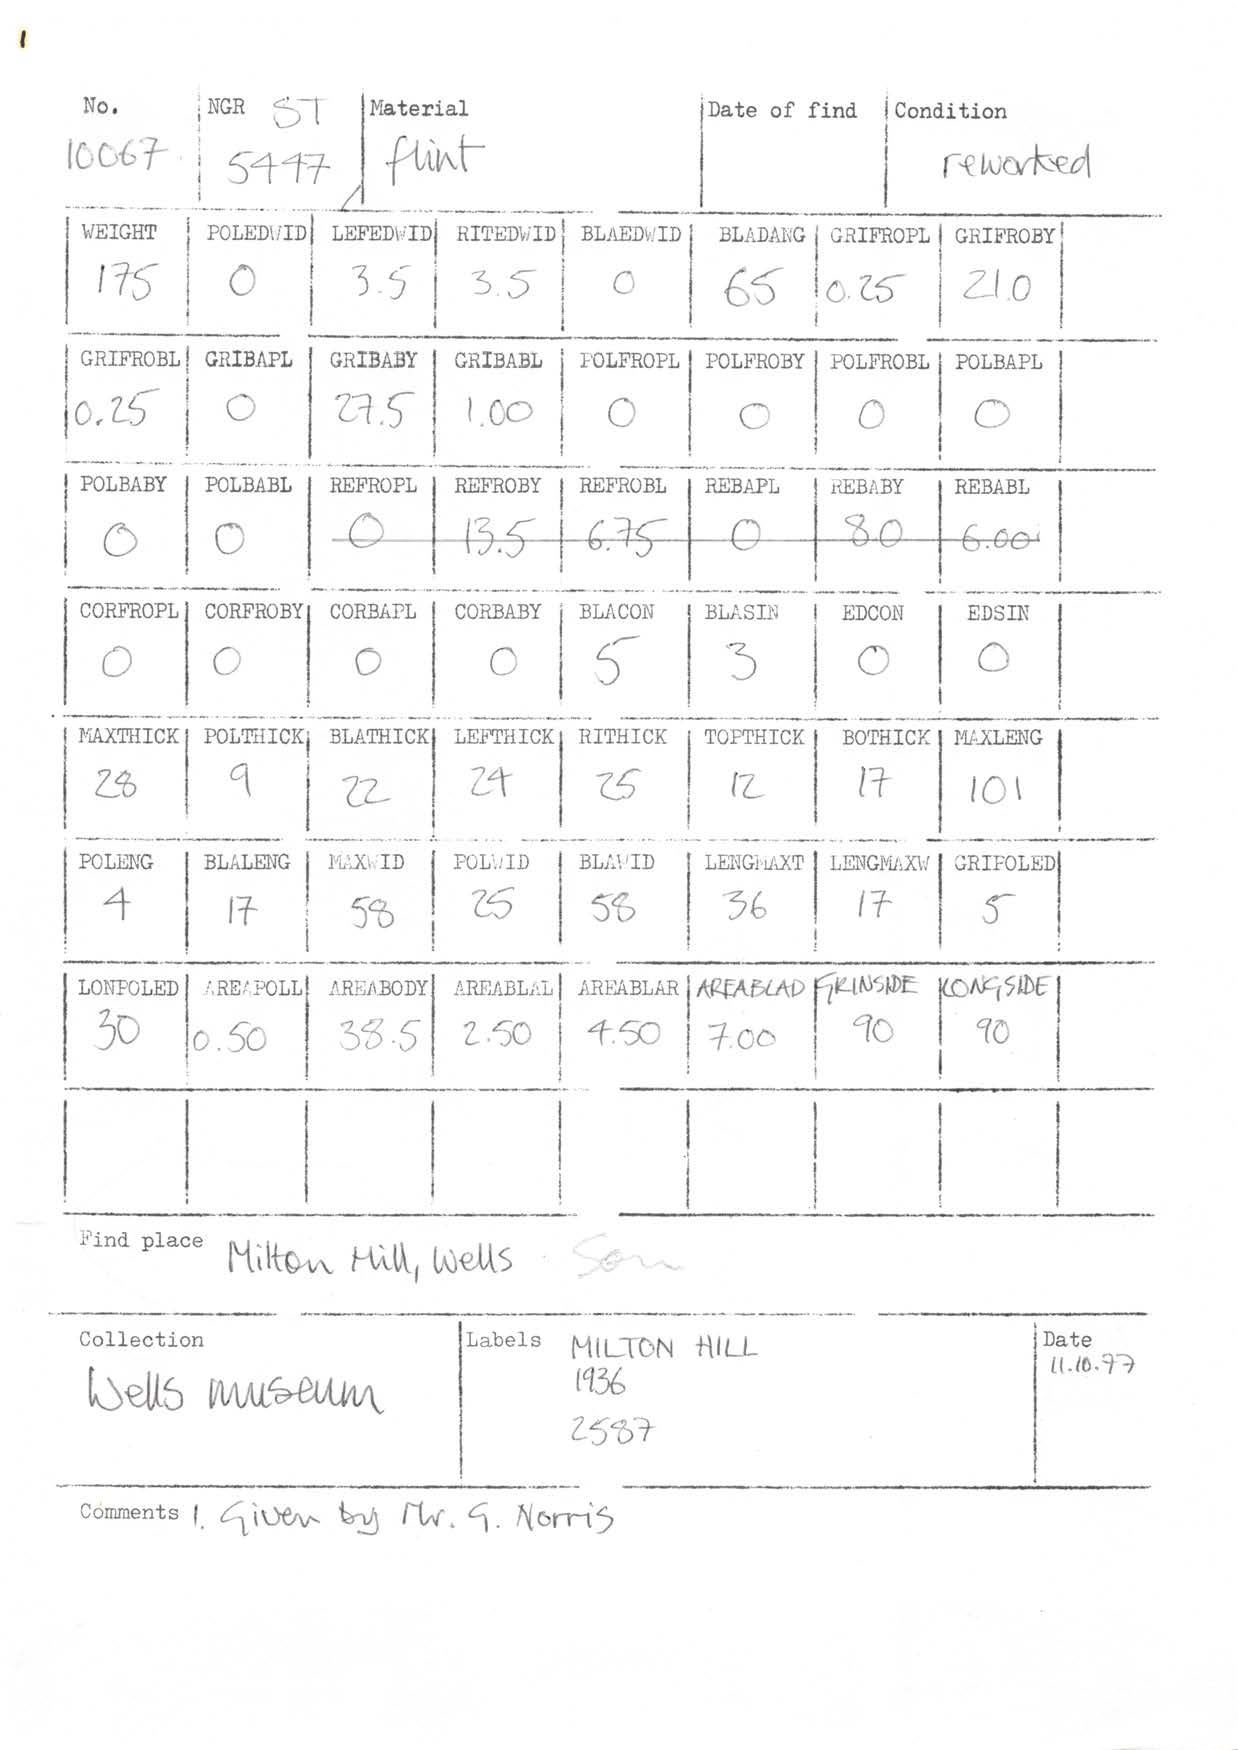 1
No. NGR ST Material Date of find Condition
10067 5447 flint reworked
WEIGHT POLEDWID LEFEDWID RITEDWID BLAEDWID BLADANG GRIFROPL GRIFROBY
175 0 3.5 3.5 0 65 0.25 21.0
GRIFROBL GRIBAPL GRIBABY GRIBABL POLFROPL POLFROBY POLFROBL POLBAPL
0.25 0 27.5 1.00 0 0 0 0
POLBABY POLBABL REFROPL REFROBY REFROBL REBAPL REBABY REBABL
0 0 0 13.5 6.75 0 8.0 6.00
CORFROPL CORFROBY CORBAPL CORBABY BLACON BLASIN EDCON EDSIN
0 0 0 0 5 3 0 0
MAXTHICK POLTHICK BLATHICK LEFTHICK RITHICK TOPTHICK BOTHICK MAXLENG
28 9 22 24 25 12 17 101
POLENG BLALENG MAXWID POLWID BLAWID LENGMAXT LENGMAXW GRIPOLED
4 17 58 25 58 36 17 5
LONPOLED AREAPOLL AREABODY AREABLAL AREABLAR AREABLAD GRINSIDE LONGSIDE
30 0.50 38.5 2.50 4.50 7.00 90 90
Find place Milton Hill, Wells Som
Collection Labels MILTON HILL Date
Wells museum 1936 11.10.77
2587
Comments 1. Given by Mr. G. Norris